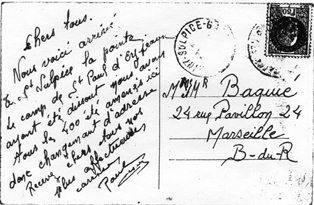 Chers tous.
Nous voici arrivés
à St Sulpice la pointe
le camp de St Paul d'Eyjeaux
ayant été dissout nous avons
tous les 400 été amenés ici
donc changement d'adresse
Recevez chers tous nos
plus affectueuses
Paul
SULPICE
Mr Baquié
24 rue Pavillon 24
Marseille
B-du-R